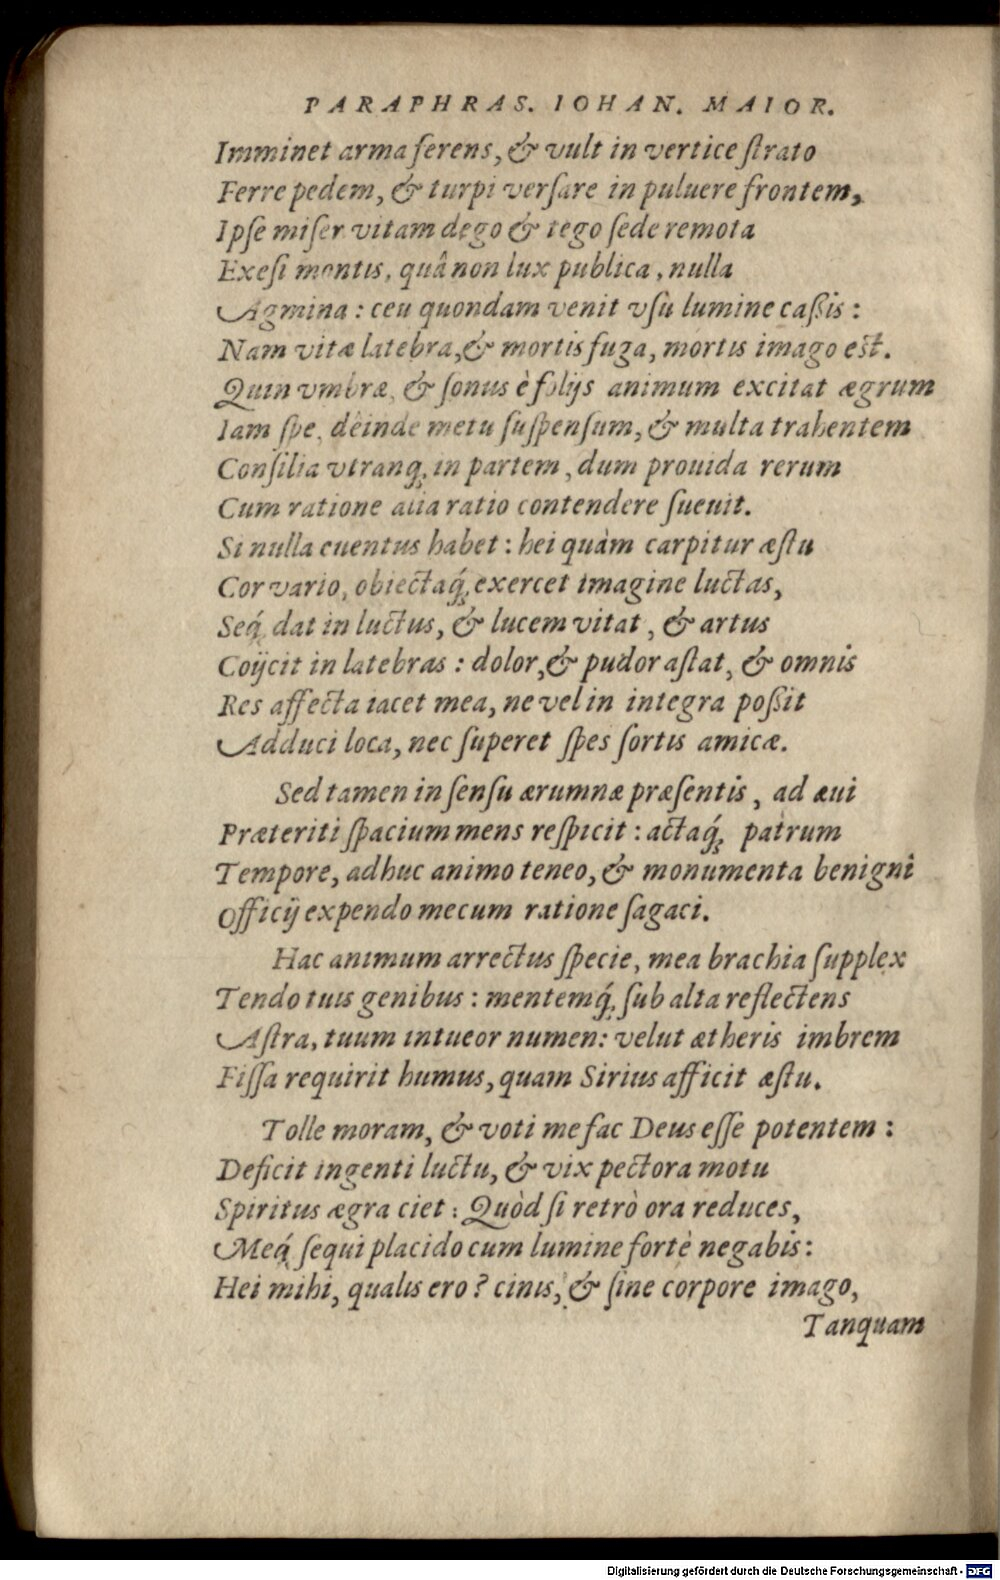 PARAPHRAS. IOHAN. MAIOR.
Imminet arma ferens, & vult in vertice ſtrato
Ferre pedem, & turpi verſare in puluere frontem,
Ipſe miſer vitam dego & tego ſede remota
Exeſi montis, quâ non lux publica, nulla
Agmina: ceu quondam venit vſu lumine caßis:
Nam vitæ latebra, & mortis fuga, mortis imago est.
Quin vmbræ, & ſonus è folijs animum excitat ægrum
Iam ſpe, dêinde metu ſuſpenſum, & multa trahentem
Conſilia vtranq́; in partem, dum prouida rerum
Cum ratione alia ratio contendere ſueuit.
Si nulla euentus habet: hei quàm carpitur æſtu
Cor vario, obiectaq́; exercet imagine luctas,
Seq́; dat in luctus, & lucem vitat, & artus
Coijcit in latebras: dolor, & pudor aſtat, & omnis
Res affecta iacet mea, ne vel in integra poßit
Adduci loca, nec ſuperet ſpes ſortis amicæ.
Sed tamen in ſenſu ærumnæ præſentis, ad æui
Præteriti ſpacium mens reſpicit: actaq́; patrum
Tempore, adhuc animo teneo, & monumenta benigni
Officij expendo mecum ratione ſagaci.
Hac animum arrectus ſpecie, mea brachia ſupplex
Tendo tuis genibus: mentemq́; ſub alta reflectens
Aſtra, tuum intueor numen: velut ætheris imbrem
Fiſſa requirit humus, quam Sirius afficit æſtu.
Tolle moram, & voti me fac Deus eſſe potentem:
Deficit ingenti luctu, & vix pectora motu
Spiritus ægra ciet: Quòd ſi retrò ora reduces,
Meq́; ſequi placido cum lumine fortè negabis:
Hei mihi, qualis ero? cinis, & ſine corpore imago,
Tanquam
Digitalisierung gefördert durch die Deutsche Forschungsgemeinschaft - DFG